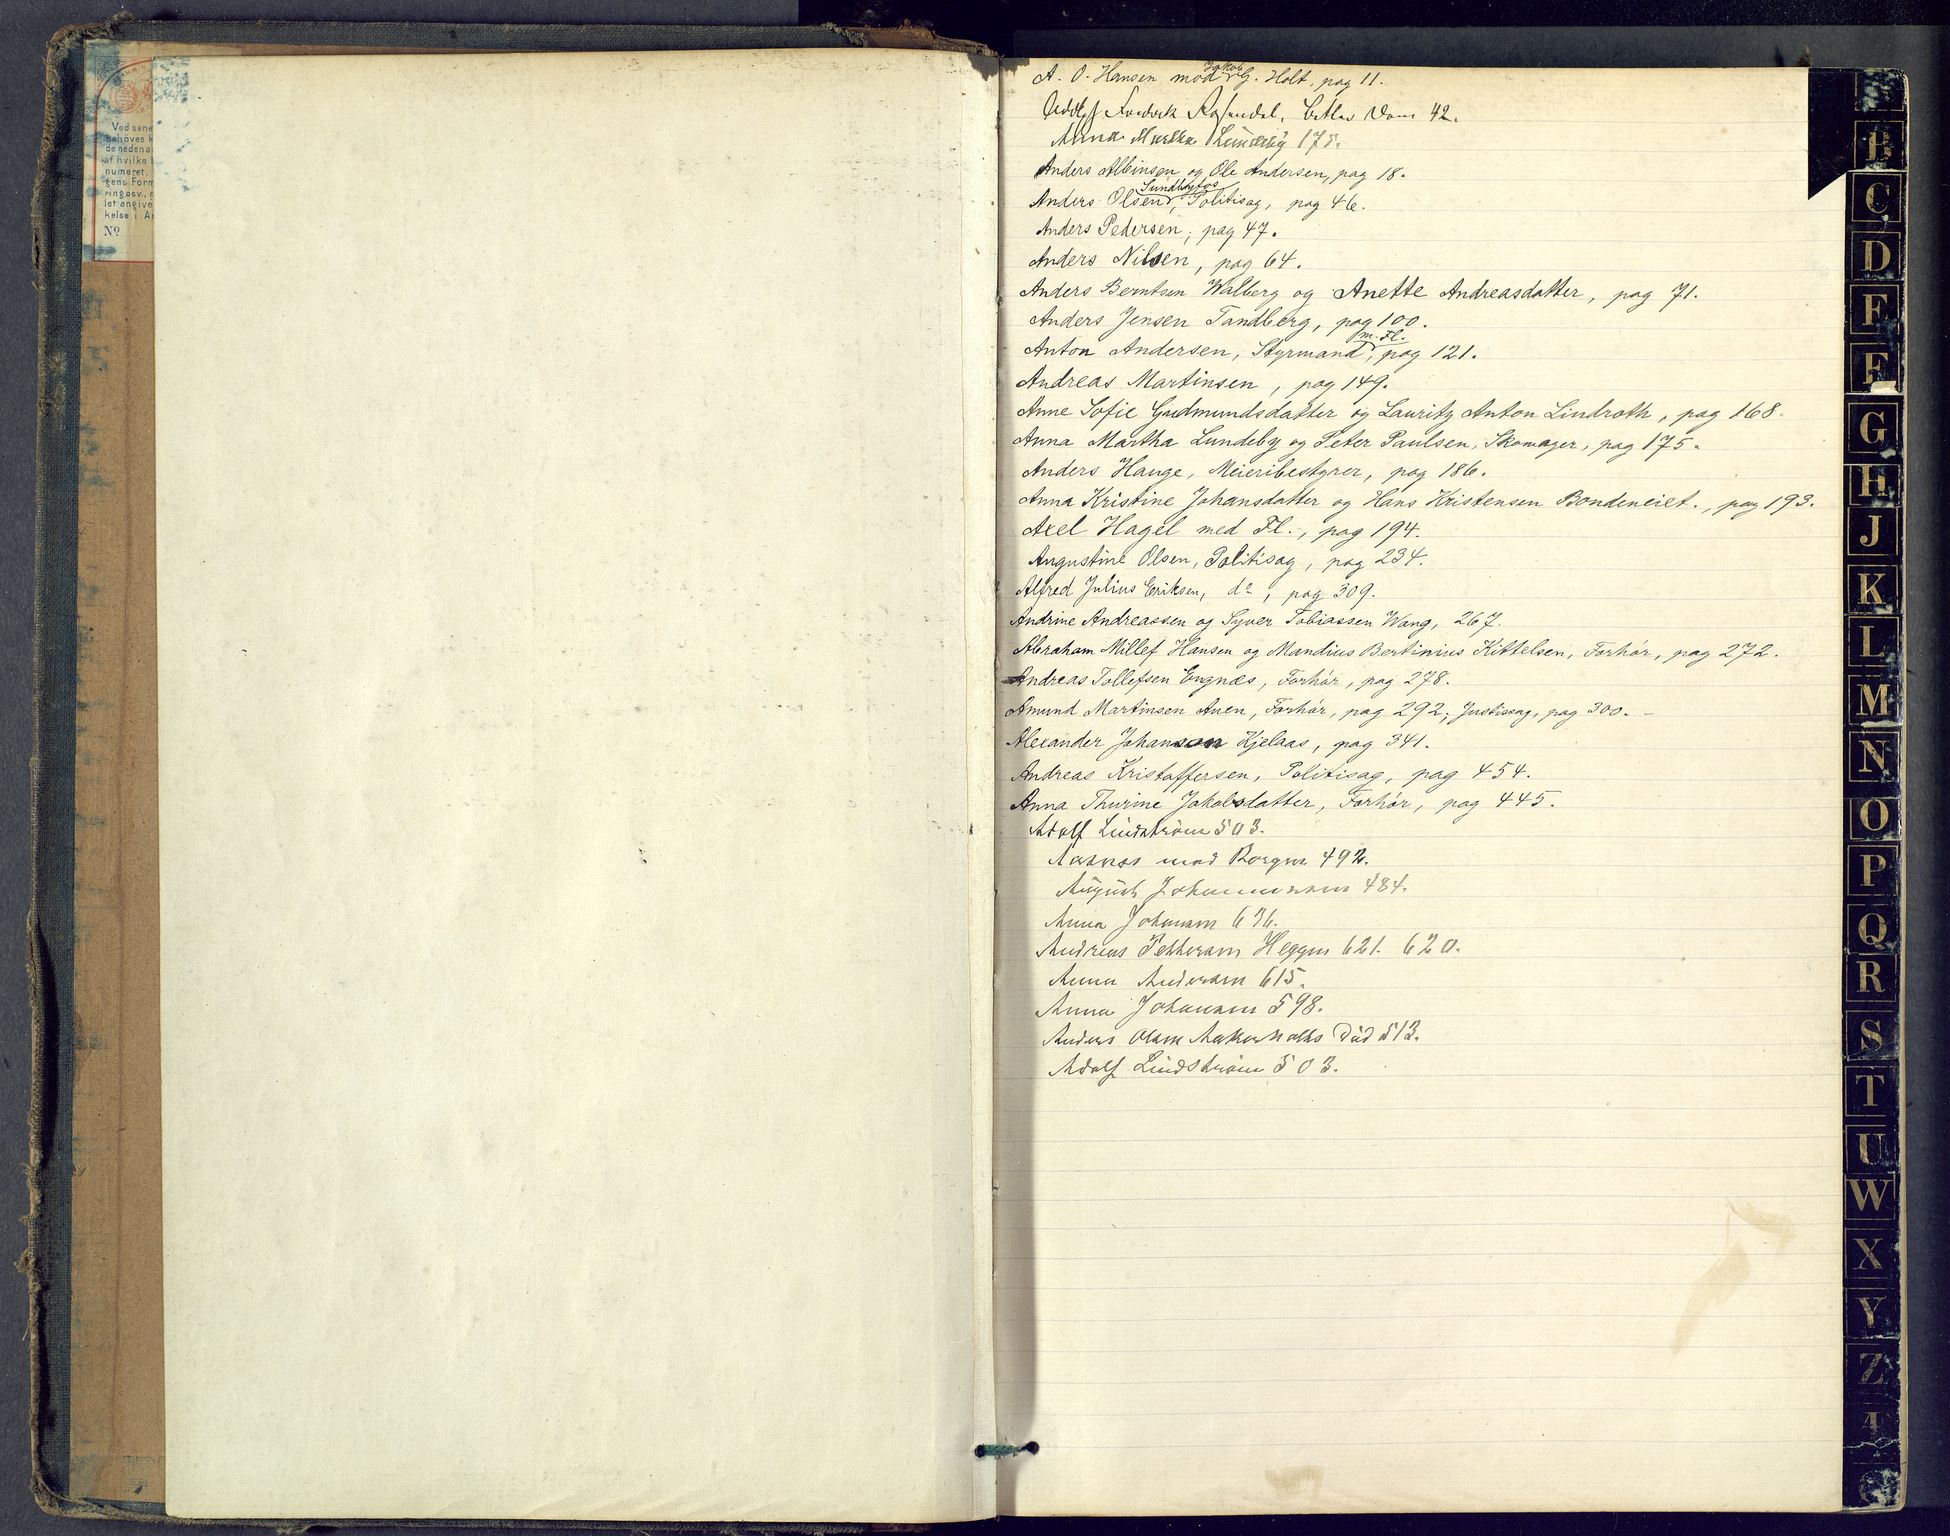 Ved sene
behöves k
de nedena
af hvilke
numeret.
gens Form
ringosv.,
let angive
kelse i A
No
A. O. Hansen mod Jakob G. Holt, pag 11.
Adolf Fredrik Rosendal, Dom 42.
Anna Martha Lundeby 175.
Anders Albinsen og Ole Andersen, pag 18.
Anders Olsen Sundbyfos, Politisag, pag 46.
Anders Pedersen, pag 47.
Anders Nilsen, pag 64.
Anders Berntsen Walberg og Anette Andreasdatter, pag 71.
Anders Jensen Tandberg, pag 100.
Anton Andersen, Styrmand m. Fl., pag 121.
Andreas Martinsen, pag 149.
Anne Sofie Gudmundsdatter og Lauritz Anton Lindroth, pag 168.
Anna Martha Lundeby og Peter Paulsen, Skomager, pag 175.
Anders Hauge, Meieribestyrer, pag 186.
Anna Kristine Johansdatter og Hans Kristensen Bondeneiet., pag 193.
Axel Hagel med Fl., pag 194.
Augustine Olsen, Politisag, pag 234.
Alfred Julius Eriksen, do, pag 309.
Andrine Andreassen og Syver Tobiassen Wang, 267.
Abraham Millef Hansen og Mandius Bertinius Kittelsen, Forhör, pag 272.
Andreas Tollefsen Engnæs, Forhör, pag 278.
Amund Martinsen Auen, Forhör, pag 292; Justissag, pag 300.
Alexander Johanson Kjelaas, pag 341.
Andreas Kristoffersen, Politisag, pag 454.
Anna Thurine Jakobsdatter, Forhör, pag 445.
Adolf Lindström 503.
Aasnes mod Borgen 492.
August Johannessen 484.
Anna Johansen 636.
Andreas Pettersen Heggen 621. 620.
Anna Andersen 615.
Anna Johansen 598.
Anders Olsen Död 513.
Adolf Lindström 503.
B
C
D
E
F
G
H
J
K
L
M
N
O
P
Q
R
S
T
U
W
X
Y
Z
Æ